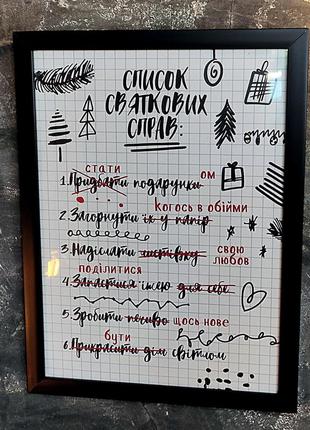 СПИСОК
СВЯТКОВИХ
СПРАВ:
стати
1. Придбати подарунки ом
когось в обійми
2. Загорнути їх у папір
3. Надіслати листівку свою
любов
поділитися
4. Запастися їжею для себе
5. Зробити печиво щось нове
бути
6. Прикрасити дім світлом